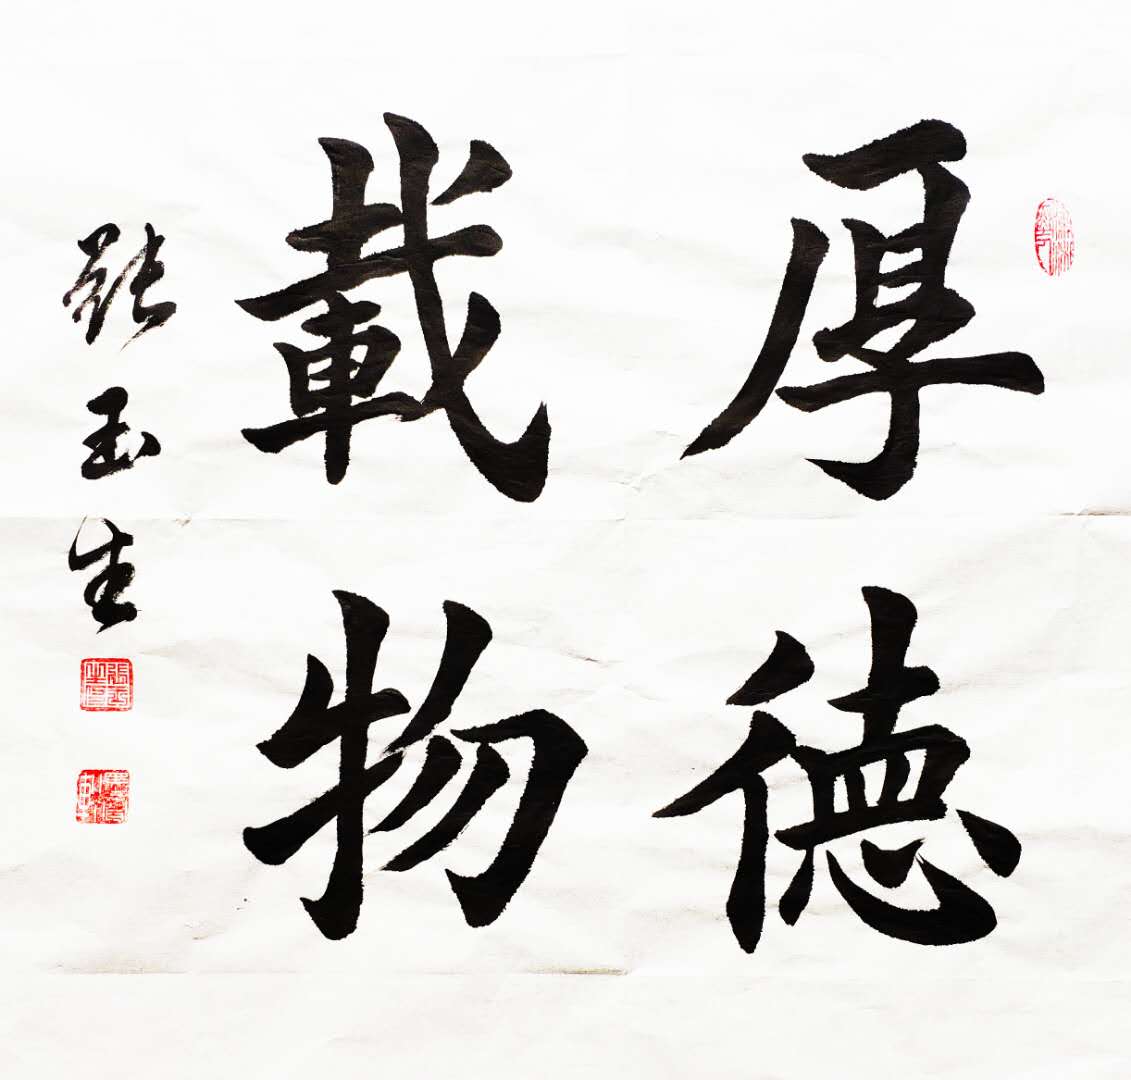 厚德
載物
張玉生